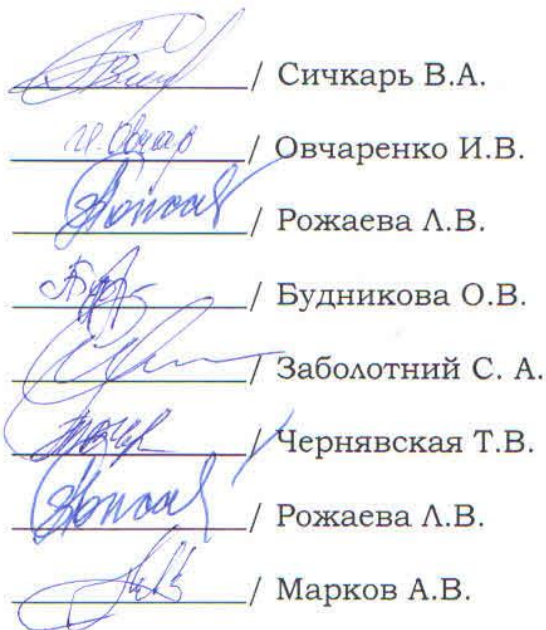 / Сичкарь В.А.
/ Овчаренко И.В.
/ Рожаева Л.В.
/ Будникова О.В.
/ Заболотний С. А.
/ Чернявская Т.В.
/ Рожаева Л.В.
/ Марков А.В.